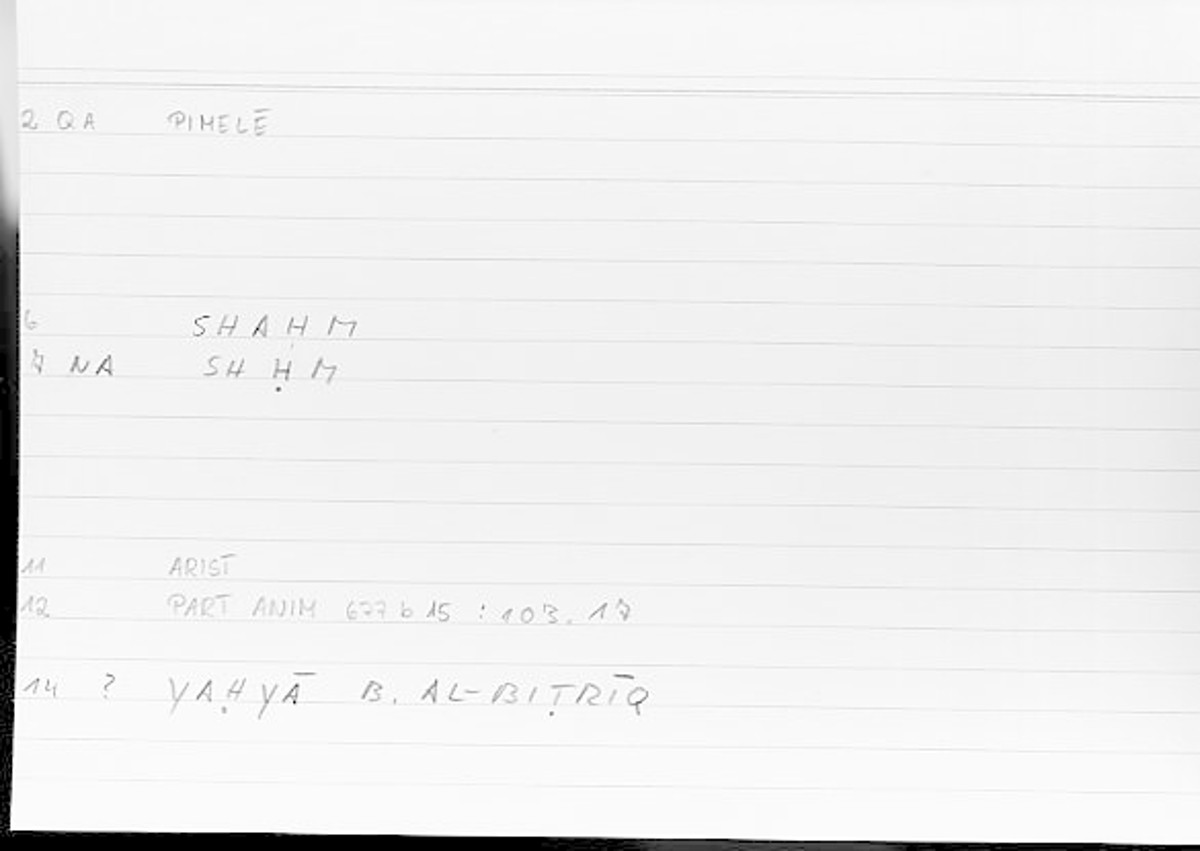 2 QA PIMELĒ
6 SHAHM
7 NA SH ḤM
11 ARIST
12 PART ANIM 677 b 15 : 103. 17
14 ? YAḤYĀ B. AL-BIṬRĪQ